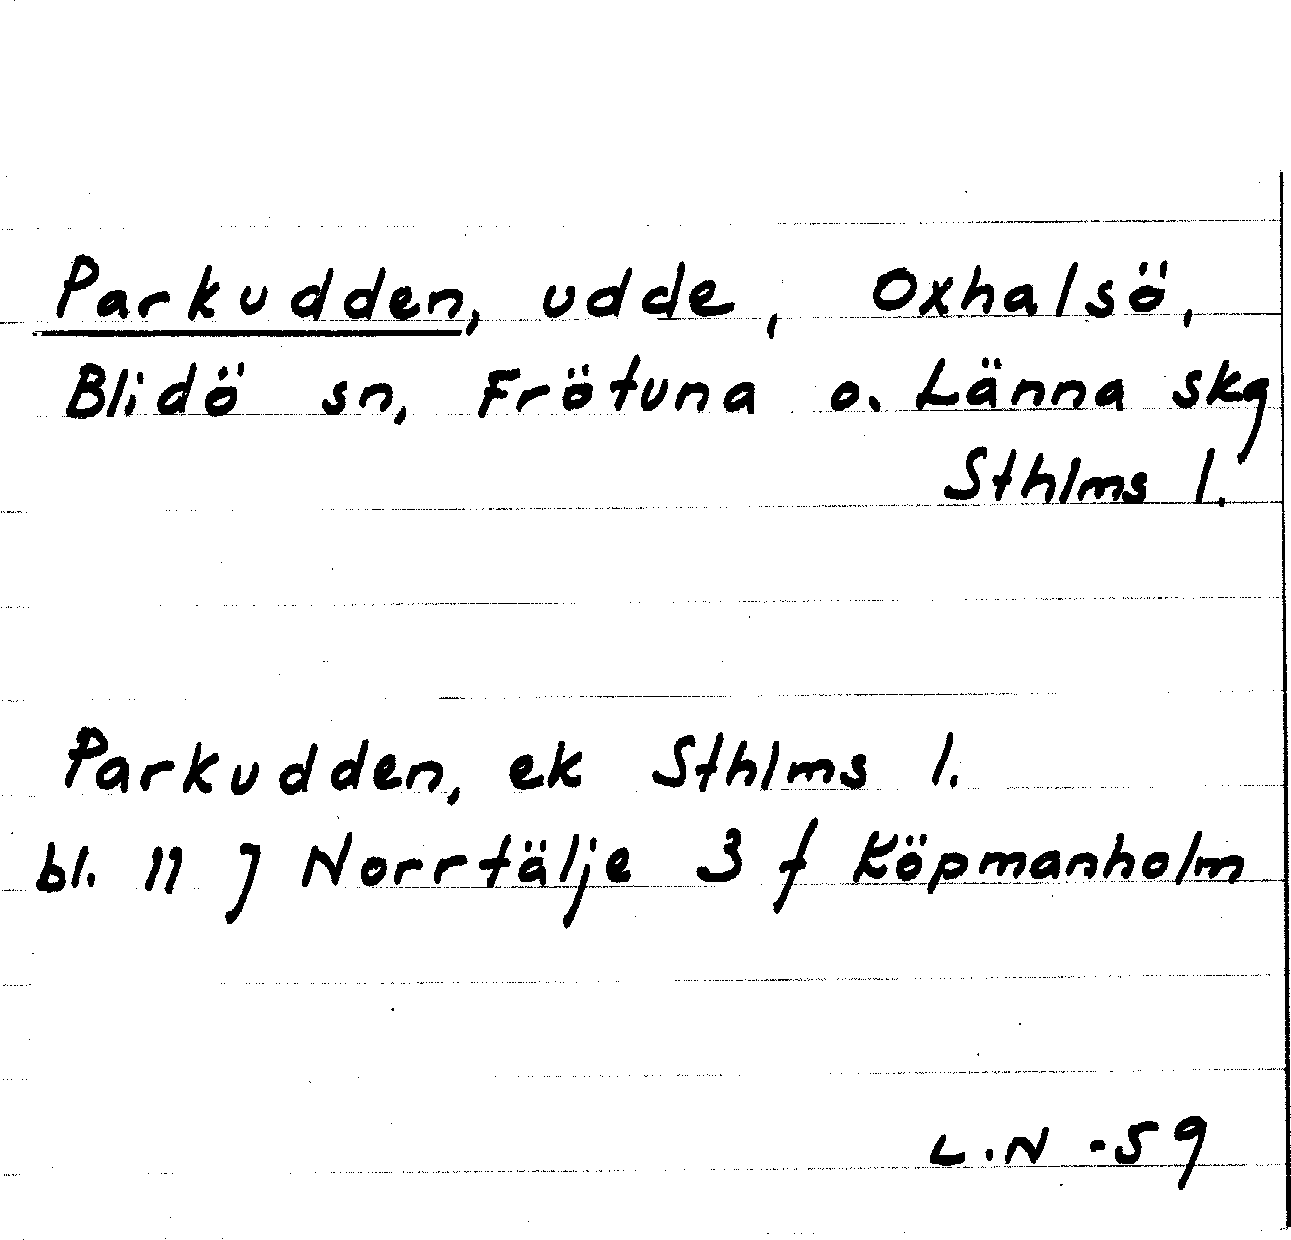 Parkudden, udde, Oxhalsö,
Blidö sn, Frötuna o. Länna skg
Sthlms l.
Parkudden, ek Sthlms l.
bl. 11 J Norrtälje 3 f Köpmanholm
L.N -59